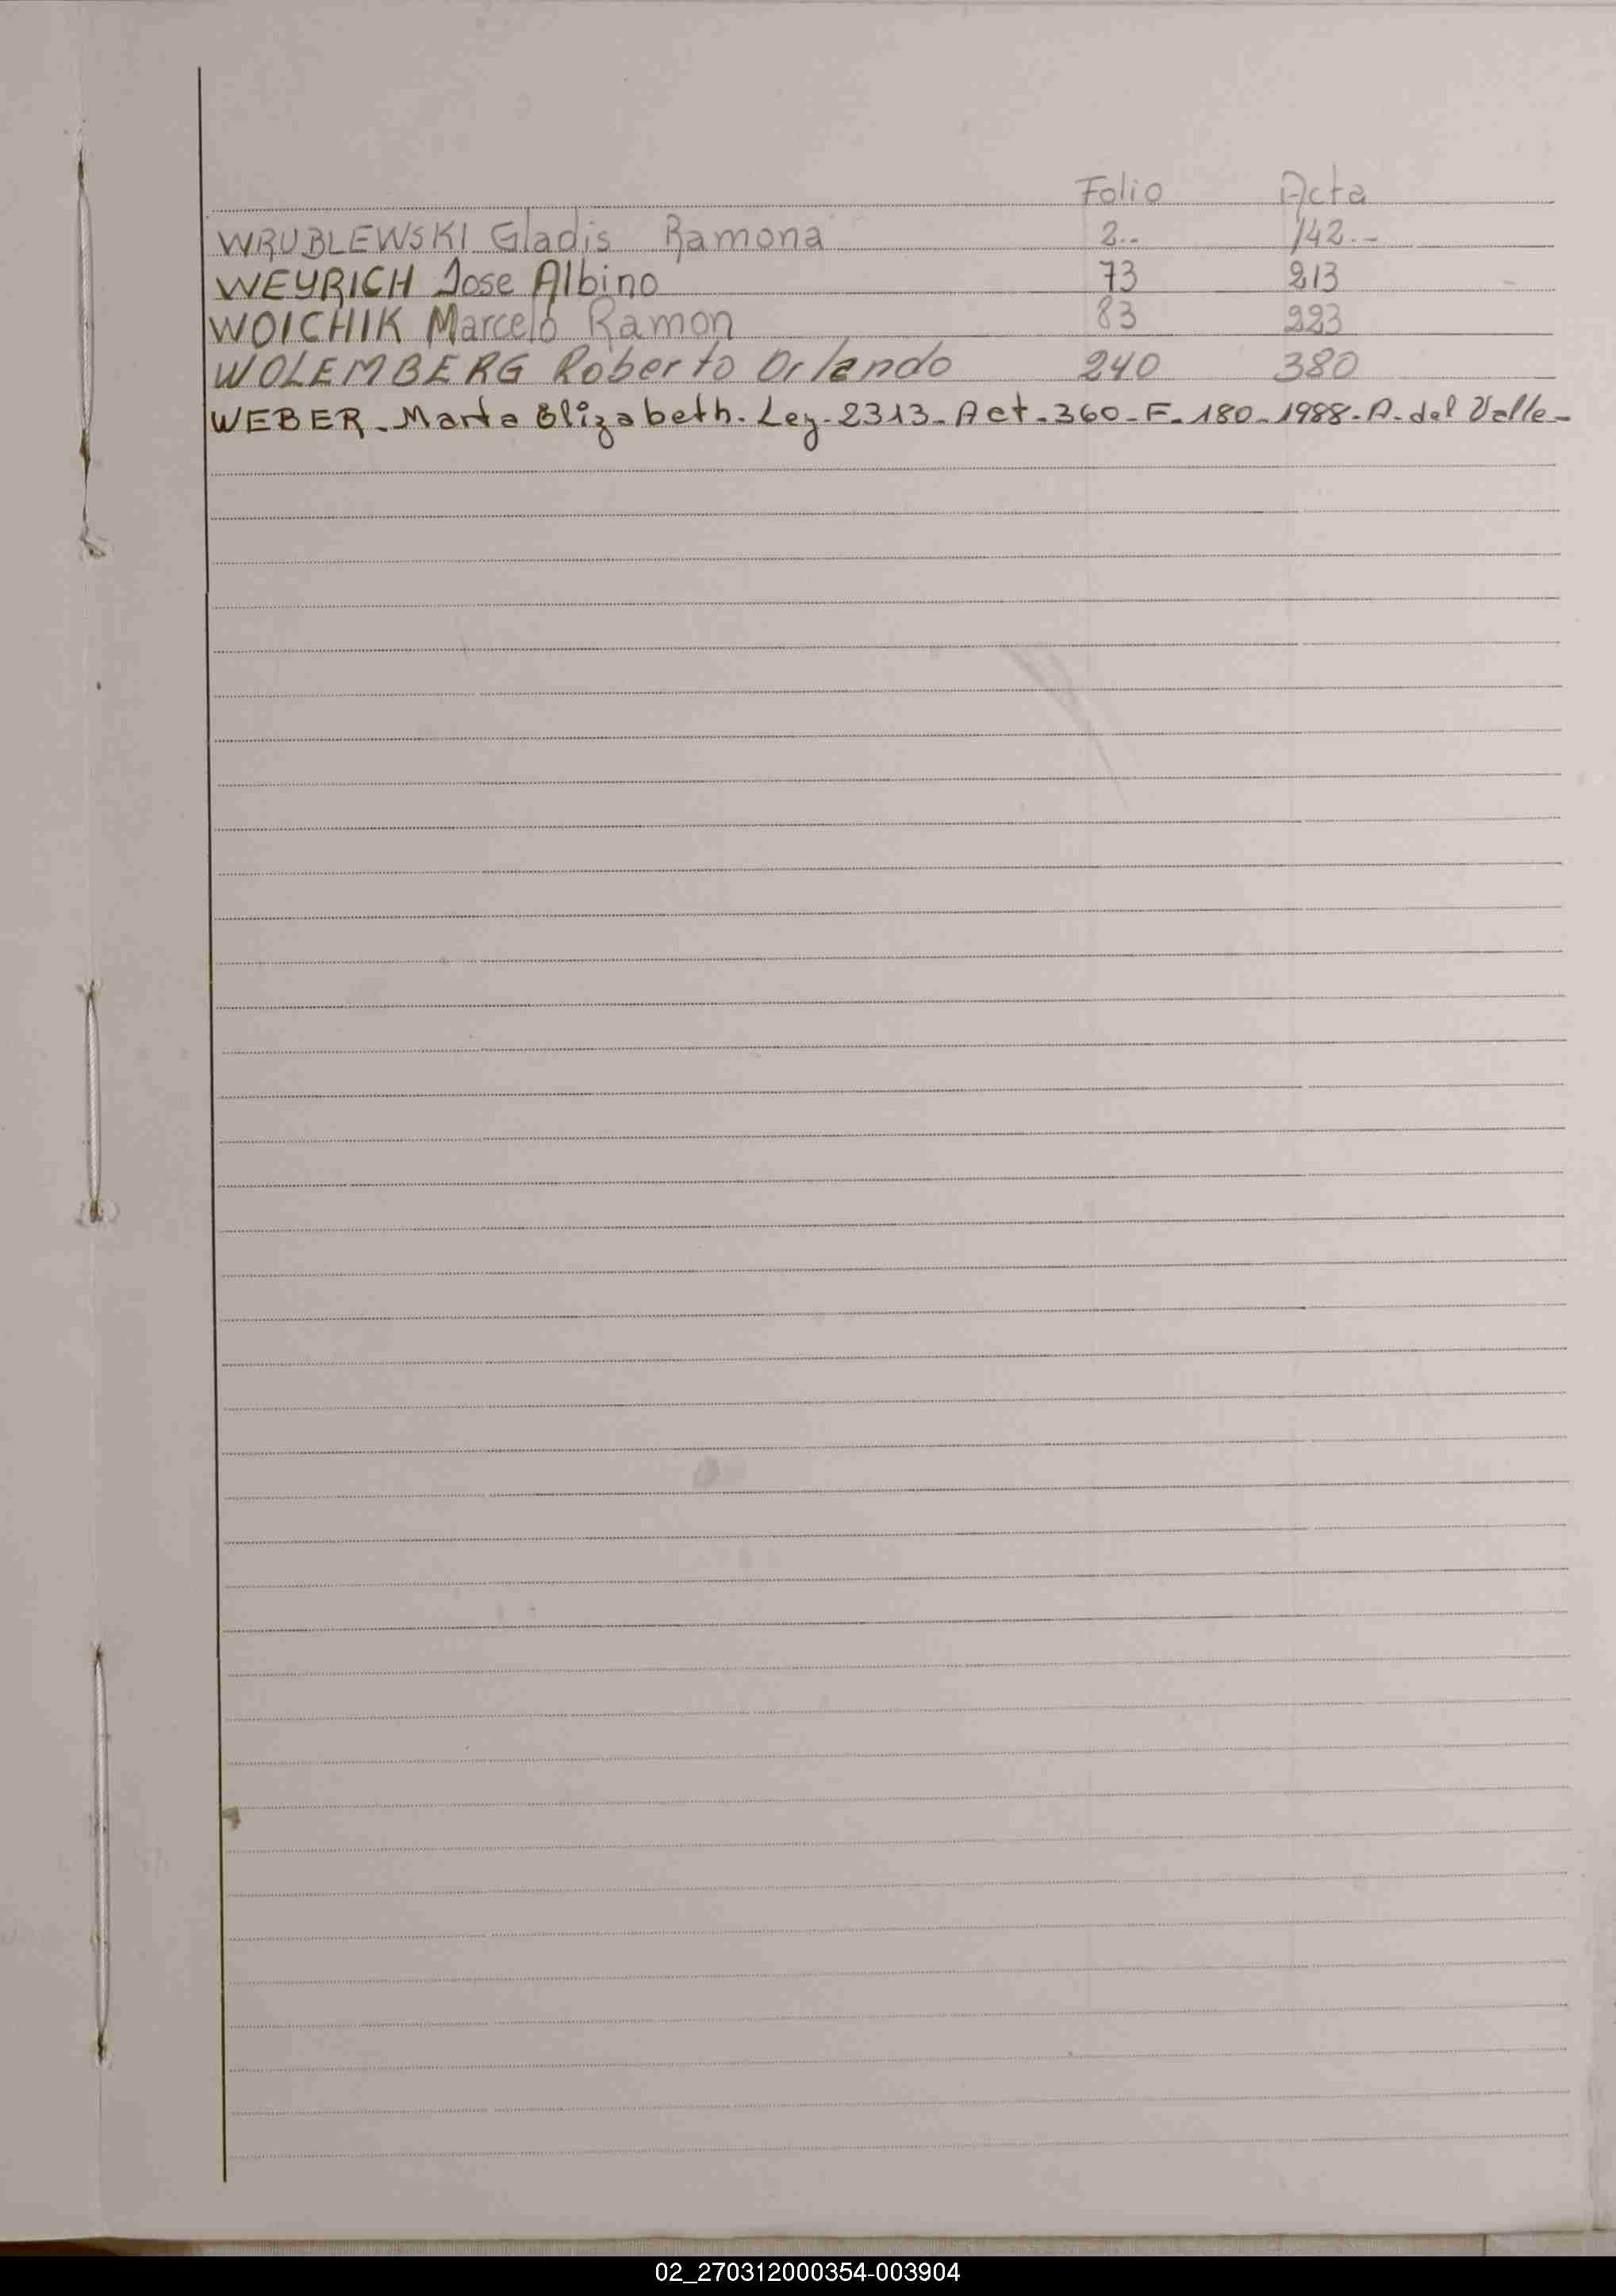 Folio Acta
WRUBLEWSKI Gladis Ramona 2.- 142.-
WEYRICH Jose Albino 73 213
WOICHIK Marcelo Ramon 83 223
WOLEMBERG Roberto Orlando 240 380
WEBER - Marta Elizabeth. Ley - 2313 - Act - 360 - F - 180 - 1988 - A. del Valle -
02_270312000354-003904